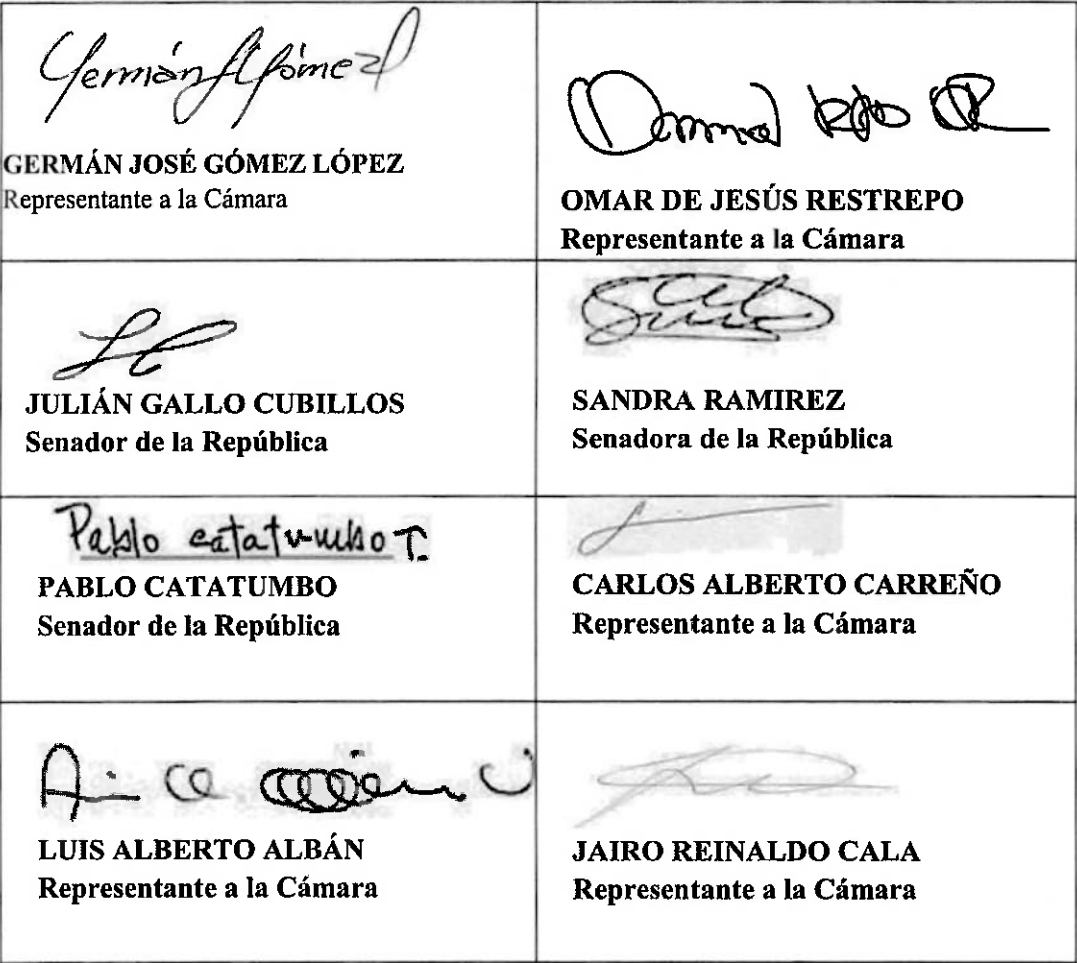 Germán Gómez
GERMÁN JOSÉ GÓMEZ LÓPEZ
Representante a la Cámara
OMAR DE JESÚS RESTREPO
Representante a la Cámara
JULIÁN GALLO CUBILLOS
Senador de la República
SANDRA RAMIREZ
Senadora de la República
Pablo catatumbo T.
PABLO CATATUMBO
Senador de la República
CARLOS ALBERTO CARREÑO
Representante a la Cámara
LUIS ALBERTO ALBÁN
Representante a la Cámara
JAIRO REINALDO CALA
Representante a la Cámara